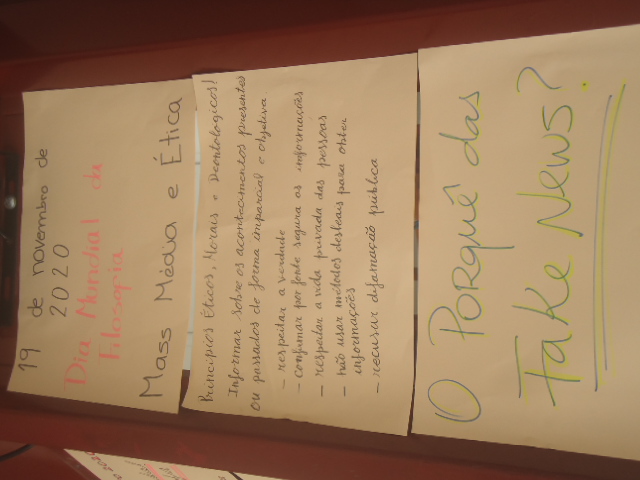 19 de novembro de
2020
Dia Mundial da
Filosofia
Mass Média e Ética
Princípios Éticos, Morais e Deontológicos!
Informar sobre os acontecimentos presentes
ou passados de forma imparcial e objetiva.
- respeitar a verdade
- confirmar por fonte segura as informações
- respeitar a vida privada das pessoas
- não usar métodos desleais para obter
informações
- recusar difamação pública
O Porquê das
Fake News?